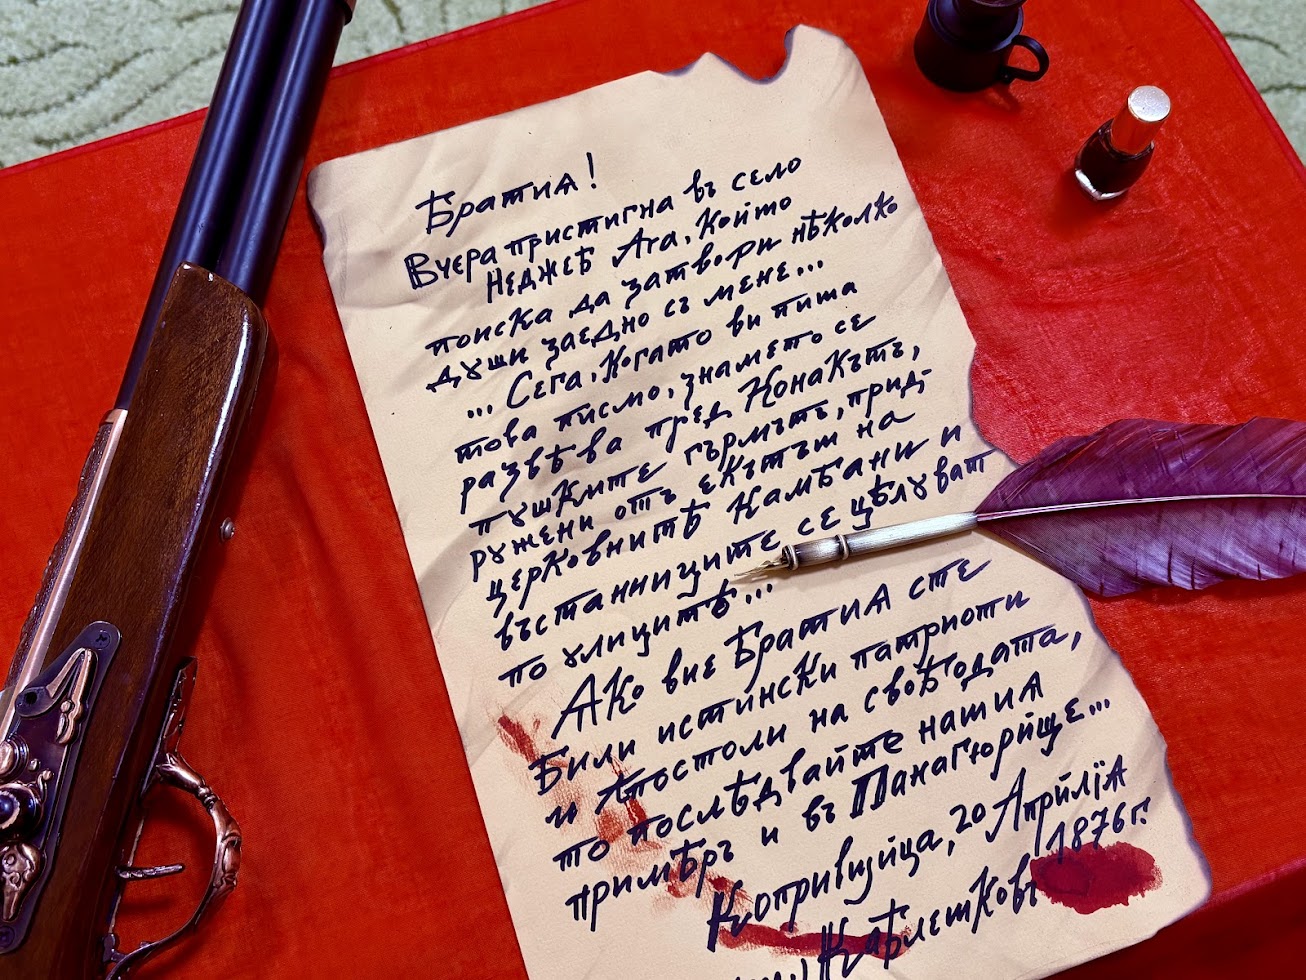 Братиѭ!
Вчера пристигна въ село
Неджеб Ага, който
поиска да затвори нѣколко
души заедно съ мене...
... Сега, когато ви пиша
това писмо, знамето се
развѣва пред Конакътъ,
пушките гърмътъ, прид-
ружени отъ екътът на
церковнитѣ камбани и
въстанниците се цѣлуват
по улицитѣ...
Ако вие Братиѭ сте
били истински патриоти
и Апостоли на свободата,
то последвайте нашиѭ
примѣръ и въ Панагюрйще...
Копривщйца, 20 Апрйлїѭ
1876 г.
Каблешковъ